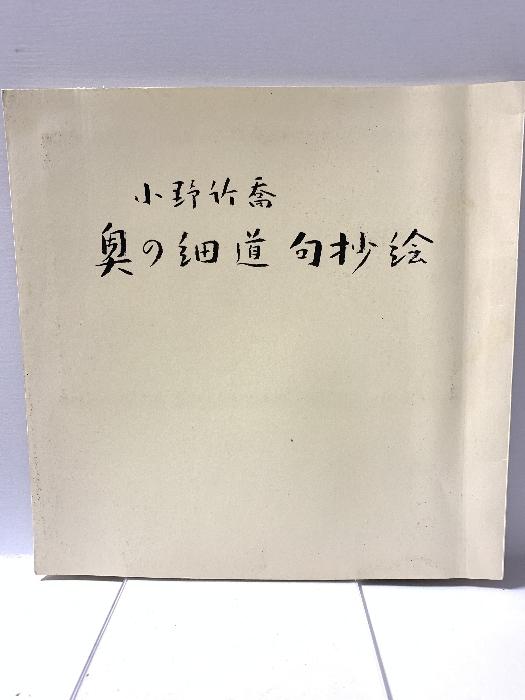 小野竹喬
奥の細道 句抄絵